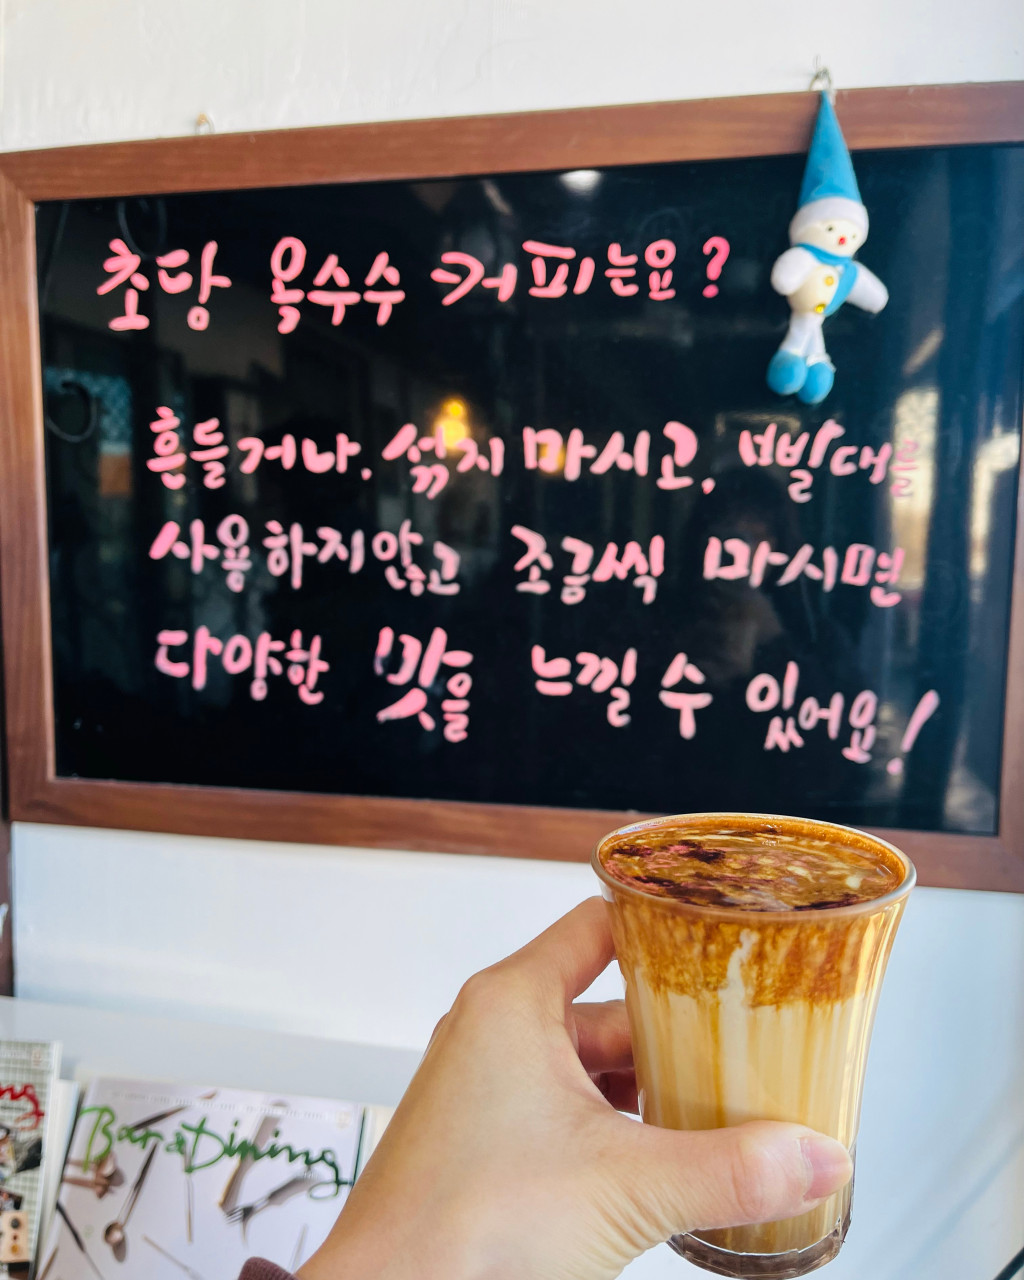 초당 옥수수 커피는요?
흔들거나. 섞지 마시고, 빨대을
사용하지않고 조금씩 마시면
다양한 맛을 느낄 수 있어요!
ng
Bar&Dining